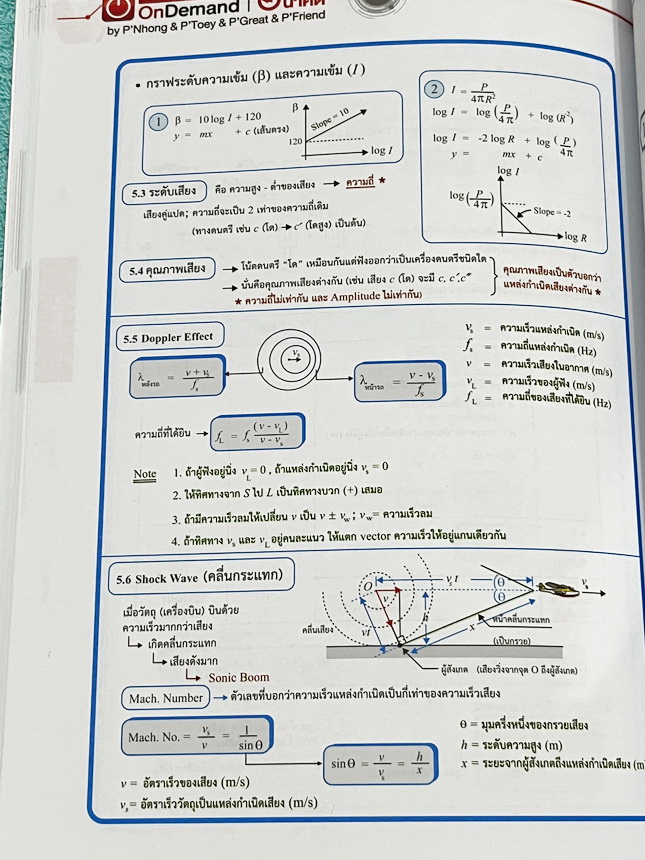 OnDemand |
by P'Nhong & P'Toey & P'Great & P'Friend
• กราฟระดับความเข้ม (β) และความเข้ม (I)
1 β = 10 log I + 120
y = mx + c (เส้นตรง)
β
Slope = 10
120
log I
2 I = P / 4πR²
log I = log (P/4π) + log (R²)
log I = -2 log R + log (P/4π)
y = mx + c
log I
log (P/4π)
Slope = -2
log R
5.3 ระดับเสียง คือ ความสูง - ต่ำของเสียง → ความถี่ *
เสียงคู่แปด; ความถี่จะเป็น 2 เท่าของความถี่เดิม
(ทางดนตรี เช่น c (โด) → c′ (โดสูง) เป็นต้น)
5.4 คุณภาพเสียง → โน้ตดนตรี "โด" เหมือนกันแต่ฟังออกว่าเป็นเครื่องดนตรีชนิดใด
→ นั่นคือคุณภาพเสียงต่างกัน (เช่น เสียง c (โด) จะมี c, c′,c″
* ความถี่ไม่เท่ากัน และ Amplitude ไม่เท่ากัน)
คุณภาพเสียงเป็นตัวบอกว่า
แหล่งกำเนิดเสียงต่างกัน *
5.5 Doppler Effect
λหลังรถ = (v + vs) / fs
vs
λหน้ารถ = (v - vs) / fs
vs = ความเร็วแหล่งกำเนิด (m/s)
fs = ความถี่แหล่งกำเนิด (Hz)
v = ความเร็วเสียงในอากาศ (m/s)
vL = ความเร็วของผู้ฟัง (m/s)
fL = ความถี่ของเสียงที่ได้ยิน (Hz)
ความถี่ที่ได้ยิน → fL = fs (v - vL) / (v - vs)
Note 1. ถ้าผู้ฟังอยู่นิ่ง vL = 0 , ถ้าแหล่งกำเนิดอยู่นิ่ง vs = 0
2. ให้ทิศทางจาก S ไป L เป็นทิศทางบวก (+) เสมอ
3. ถ้ามีความเร็วลมให้เปลี่ยน v เป็น v ± vw ; vw = ความเร็วลม
4. ถ้าทิศทาง vs และ vL อยู่คนละแนว ให้แตก vector ความเร็วให้อยู่แกนเดียวกัน
5.6 Shock Wave (คลื่นกระแทก)
เมื่อวัตถุ (เครื่องบิน) บินด้วย
ความเร็วมากกว่าเสียง
เกิดคลื่นกระแทก
เสียงดังมาก
Sonic Boom
O
vs t
θ
θ
vs
v
vt
h
x
คลื่นเสียง
หน้าคลื่นกระแทก
(เป็นกรวย)
ผู้สังเกต (เสียงวิ่งจากจุด O ถึงผู้สังเกต)
Mach. Number → ตัวเลขที่บอกว่าความเร็วแหล่งกำเนิดเป็นกี่เท่าของความเร็วเสียง
Mach. No. = vs / v = 1 / sinθ
sinθ = v / vs = h / x
θ = มุมครึ่งหนึ่งของกรวยเสียง
h = ระดับความสูง (m)
x = ระยะจากผู้สังเกตถึงแหล่งกำเนิดเสียง (m
v = อัตราเร็วของเสียง (m/s)
vs = อัตราเร็ววัตถุเป็นแหล่งกำเนิดเสียง (m/s)